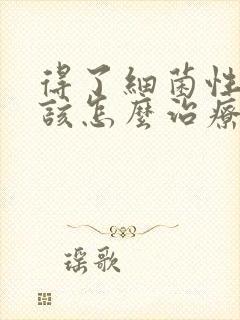 得了細菌性
該怎麼治療
瑶歌